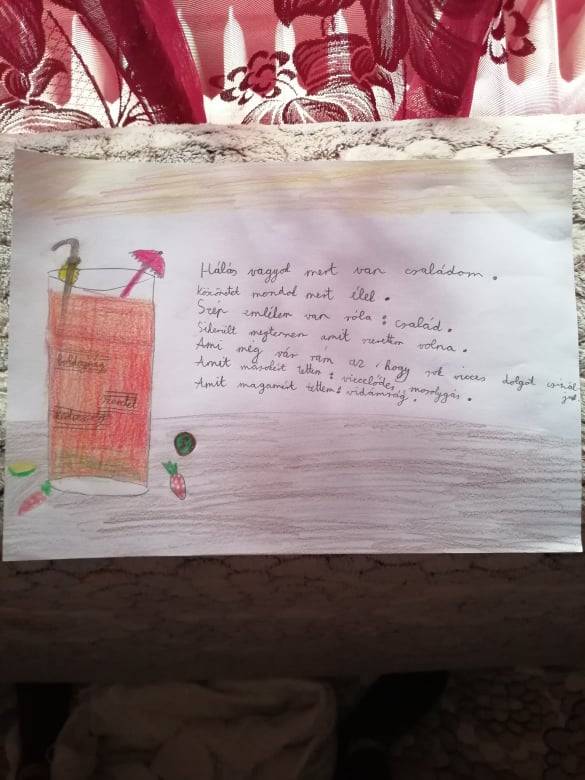 Hálás vagyok mert van családom.
Köszönetet mondok mert élek.
Szép emlékem van róla: család.
Sikerült megtennem amit szerettem volna.
Ami még vár rám az, hogy sok vicces dolgot csinál
jak.
Amit másokért tettem: viccelődés, mosolygás.
Amit magamért tettem: vidámság.
boldogság
szeretet